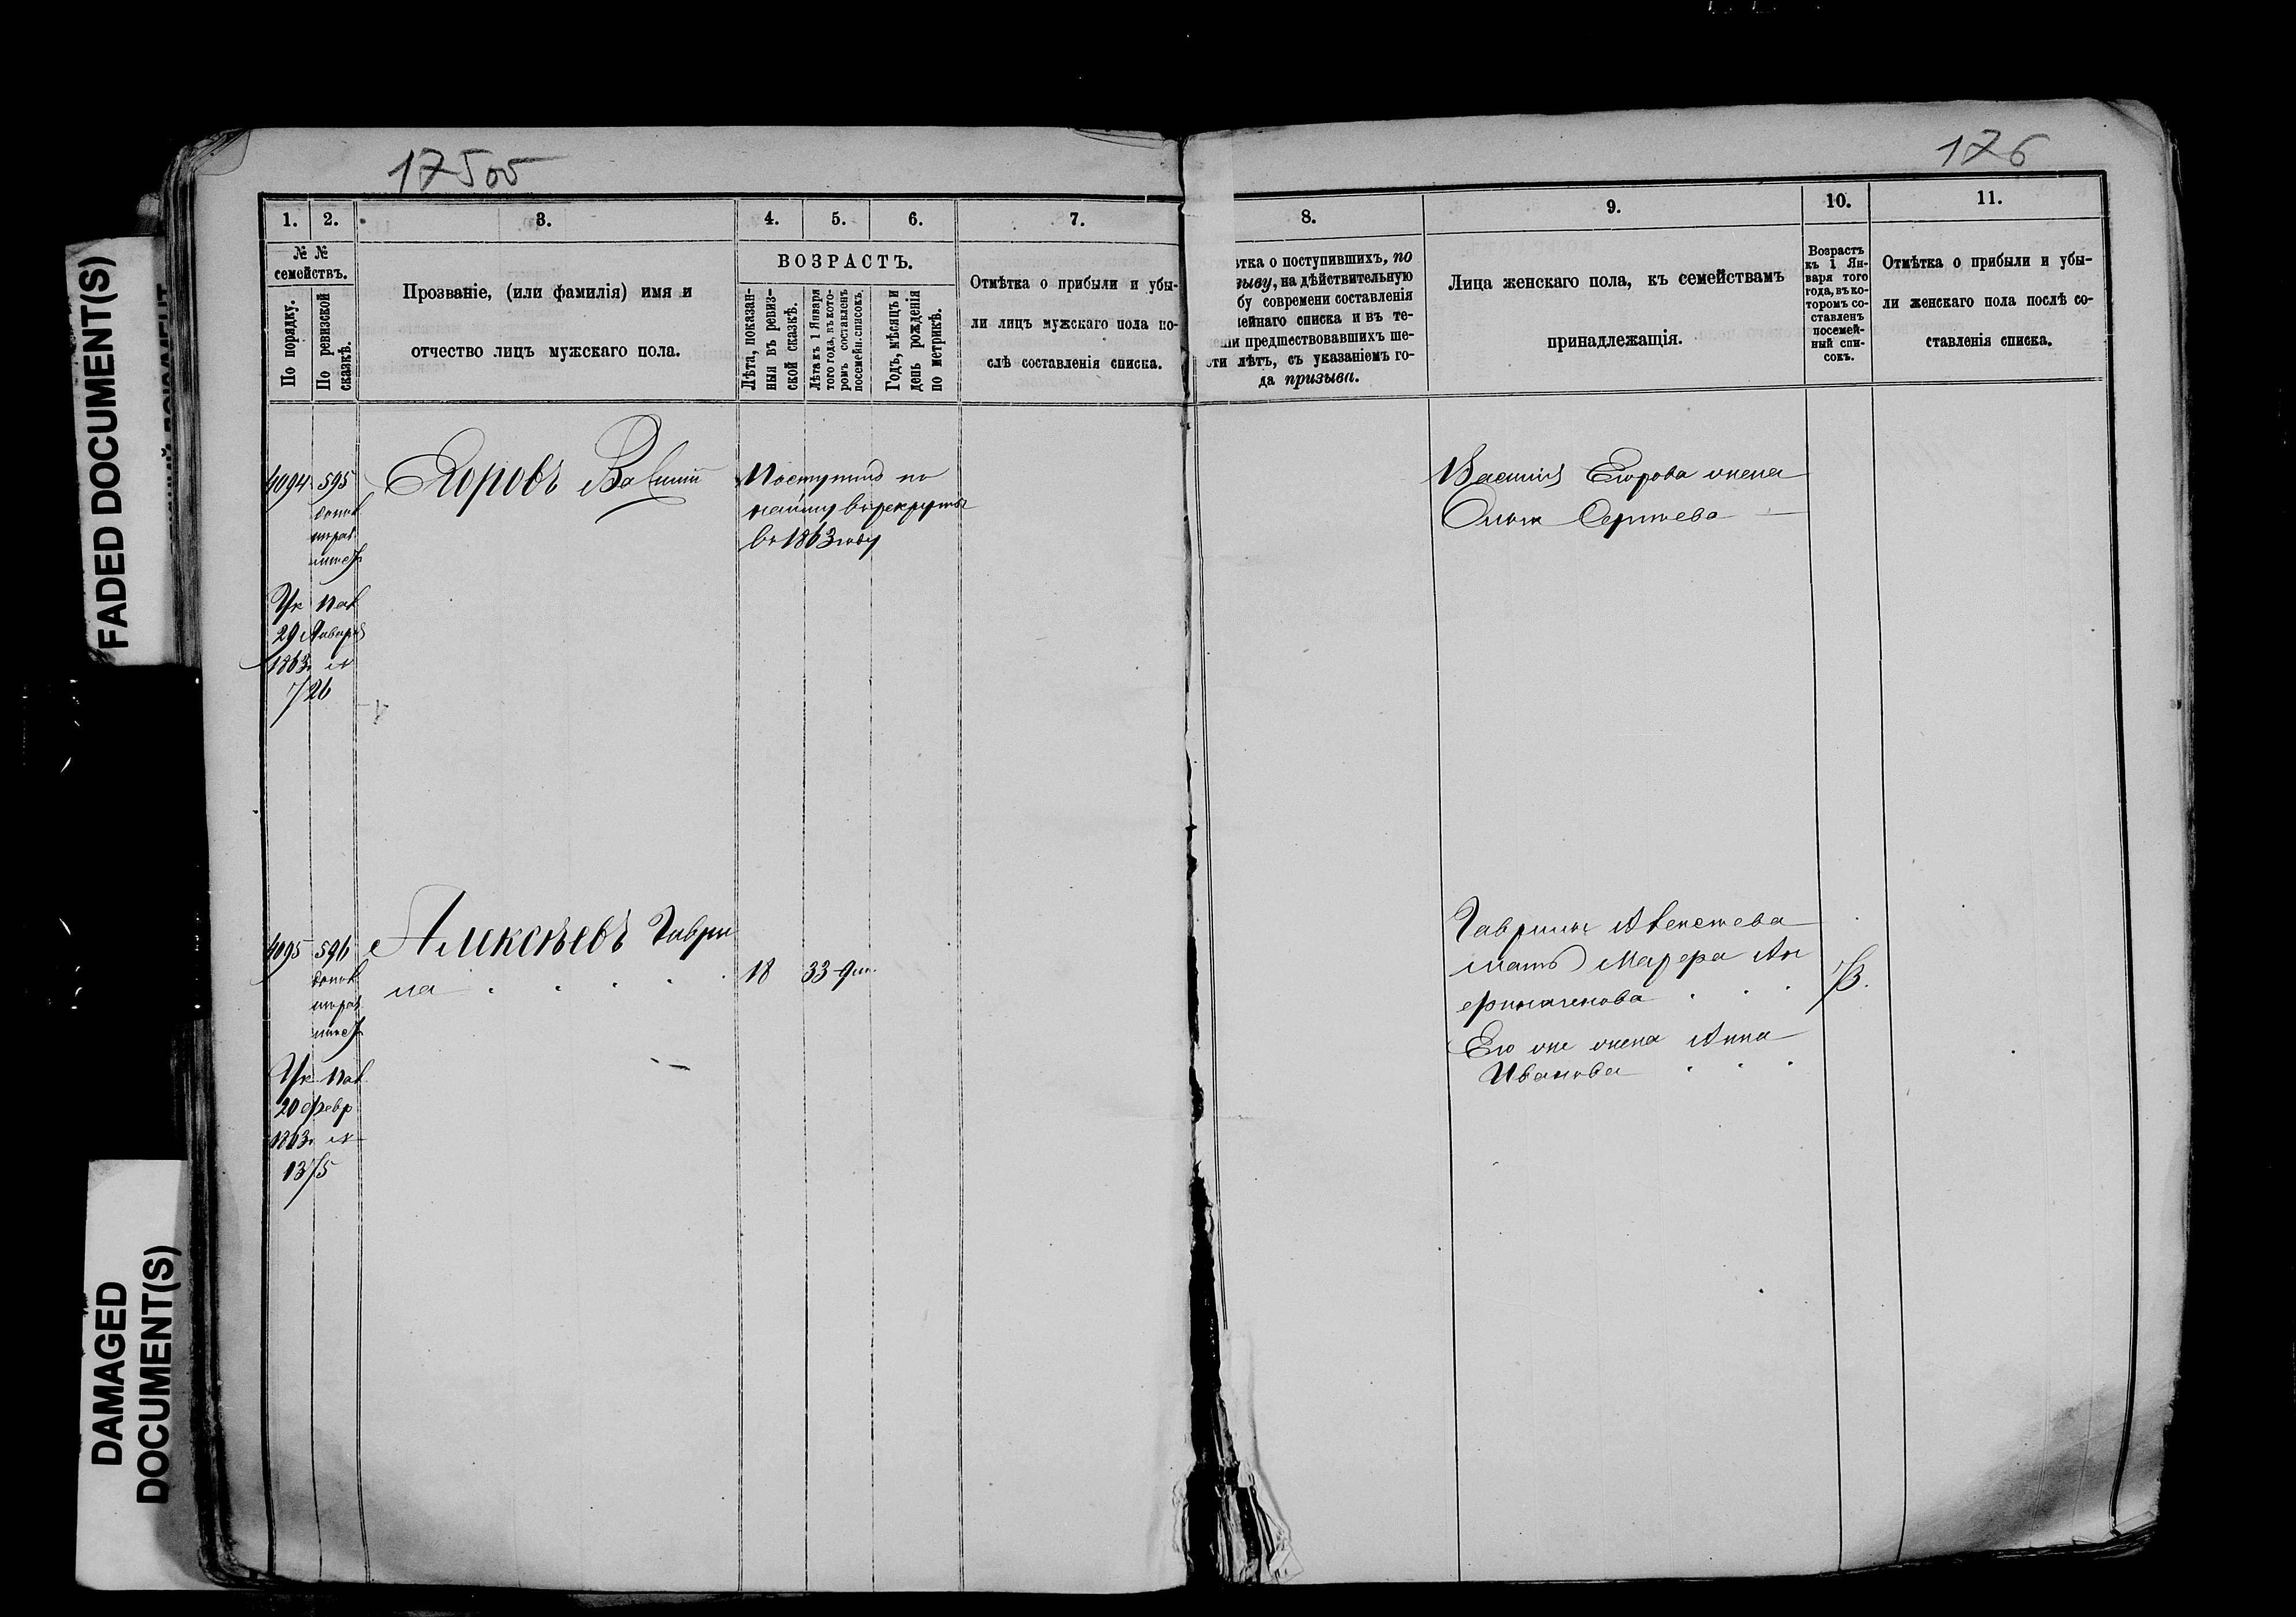 FADED DOCUMENT(S)
DAMAGED
DOCUMENT(S)
175об
176
1.
2.
3.
4.
5.
6.
7.
8.
9.
10.
11.
№ №
семействъ.
По порядку.
По ревизской
сказкѣ.
Прозваніе, (или фамилія) имя и
отчество лицъ мужскаго пола.
ВОЗРАСТЪ.
Лѣта, показан-
ныя въ ревиз-
ской сказкѣ.
Лѣта къ 1 Января
того года, въ кото-
ромъ составленъ
посемейн. списокъ.
Годъ, мѣсяцъ и
день рожденія
по метрикѣ.
Отмѣтка о прибыли и убы-
ли лицъ мужскаго пола по-
слѣ составленія списка.
тка о поступившихъ, по
зыву, на дѣйствительную
бу современи составленія
ейнаго списка и въ те-
ши предшествовавшихъ ше-
сти лѣтъ, съ указаніемъ го-
да призыва.
Лица женскаго пола, къ семействамъ
принадлежащія.
Возрастъ
къ 1 Ян-
варя того
года, въ ко-
торомъ со-
ставленъ
посемей-
ный спи-
сокъ.
Отмѣтка о прибыли и убы-
ли женскаго пола послѣ со-
ставленія списка.
4094
595
Егоровъ Василій
Поступилъ по
найму въ рекруты
въ 1863 году
Василія Егорова жена
Сергѣева
29 Января
1863 г. №
726
4095
596
Алексѣевъ Гаври
ла
18
33
Гаврилы Алексѣева
мать
73.
Его же жена Анна
Иванова
20 Февр
1863 г. №
1375